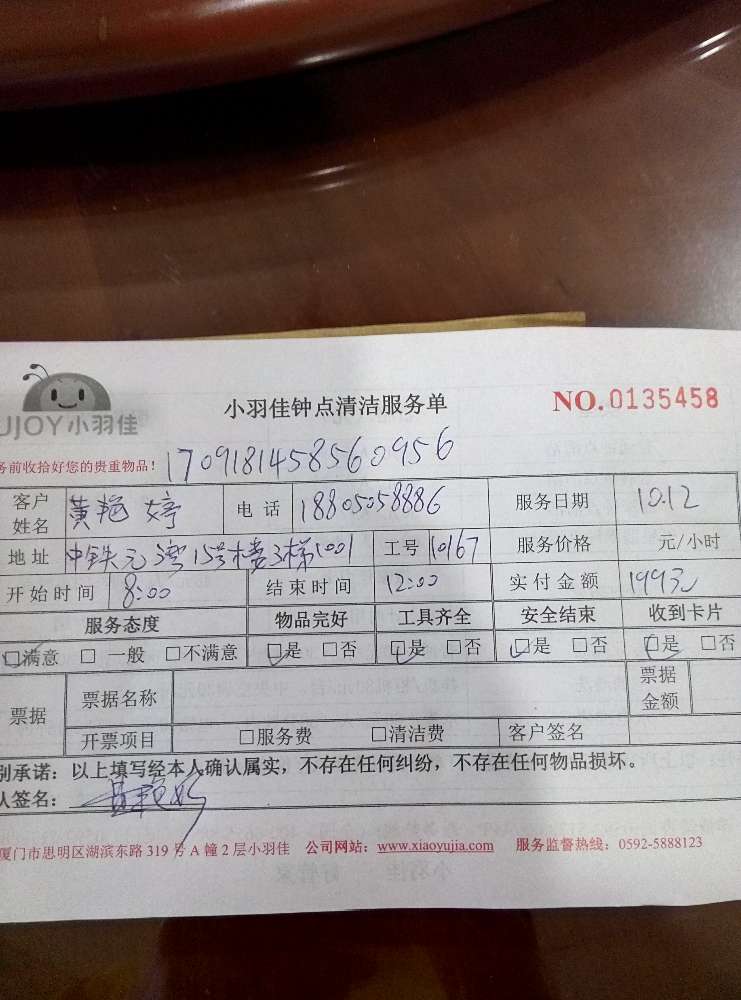 UJOY小羽佳
小羽佳钟点清洁服务单
NO.0135458
务前收拾好您的贵重物品！
170918145856 0956
客户姓名 黄艳婷 电话 18805058886 服务日期 10.12
地址 中铁元湾15号楼3梯1001 工号 10167 服务价格 元/小时
开始时间 8:00 结束时间 12:00 实付金额 199元
服务态度 物品完好 工具齐全 安全结束 收到卡片
□满意 □一般 □不满意 □是 □否 □是 □否 □是 □否 □是 □否
票据 票据名称 票据金额
开票项目 □服务费 □清洁费 客户签名
别承诺：以上填写经本人确认属实，不存在任何纠纷，不存在任何物品损坏。
人签名：黄艳婷
厦门市思明区湖滨东路 319 号 A 幢 2 层小羽佳 公司网站：www.xiaoyujia.com 服务监督热线：0592-5888123